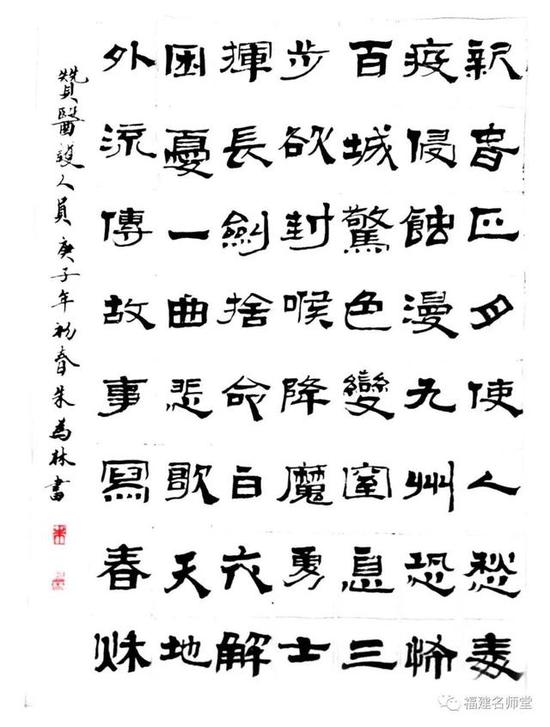 新春正月使人愁毒
疫侵蝕漫九州恐怖
百城驚色變窒息三
步欲封喉降魔勇士
揮長劍捨命白衣解
困憂一曲悲歌天地
外流傳故事寫春秋
贊醫護人員庚子年初春朱為林書
福建名师堂